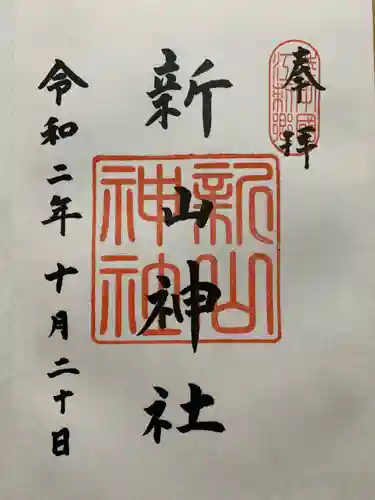 奉拝
新山神社
新山
神社
令和二年十月二十日